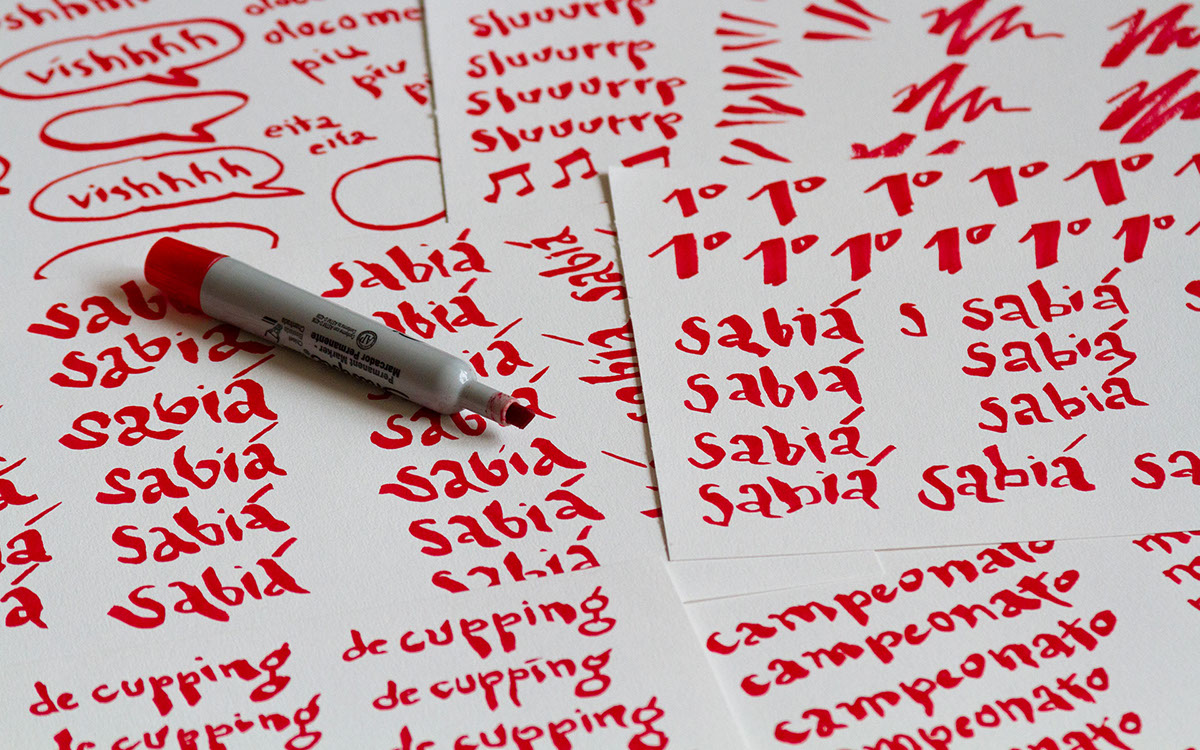 vishhhh
olocome
piu
piu
eita
eita
vishhhh
sluuurrp
sluuurrp
sluuurrp
sluuurrp
1º 1º 1º 1º 1º
1º 1º 1º 1º 1º 1º
sabiá s sabiá
sabiá sabiá
sabiá sabiá
sabiá sabiá
sabiá
sabiá
sabiá
sabiá
sabiá
sabiá
sabiá
sabiá
sabiá
sabiá
sabiá
sabiá
Permanent Marker
Marcador Permanente
AP
de cupping
de cupping
de cupping
de cupping
de cupping
de cupping
campeonato
campeonato
campeonato
campeonato
campeonato